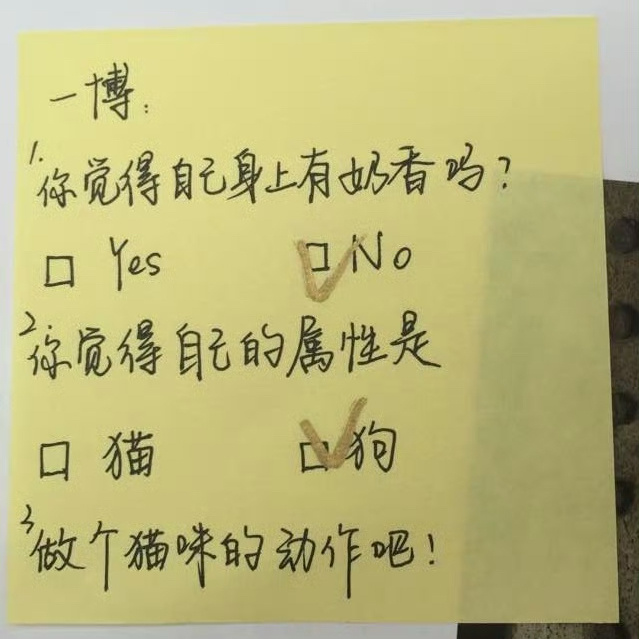 一博:
1.你觉得自己身上有奶香吗?
□ Yes □ No
2你觉得自己的属性是
□ 猫 □ 狗
3做个猫咪的动作吧!